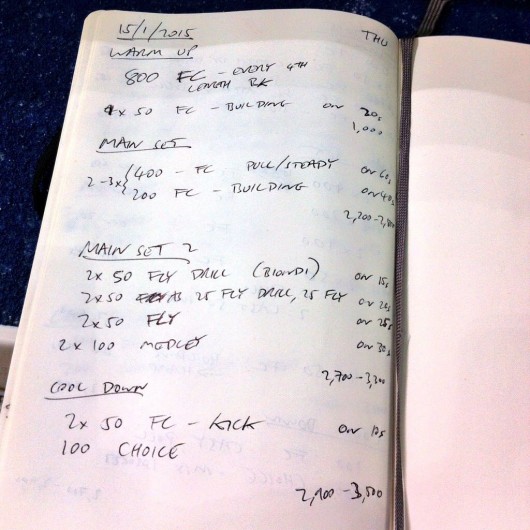 15/1/2015 THU
WARM UP
800 FC - EVERY 4TH
LENGTH BK
4x 50 FC - BUILDING ON 20s
1,000
MAIN SET
2-3x { 400 - FC PULL/STEADY ON 60s
200 FC - BUILDING ON 40s
2,200-2,800
MAIN SET 2
2x 50 FLY DRILL (BIONDI) ON 15s
2x50 AS 25 FLY DRILL, 25 FLY ON 20s
2x50 FLY ON 25s
2x 100 MEDLEY ON 30s
2,700-3,300
COOL DOWN
2x 50 FC - KICK ON 10s
100 CHOICE
2,900-3,500